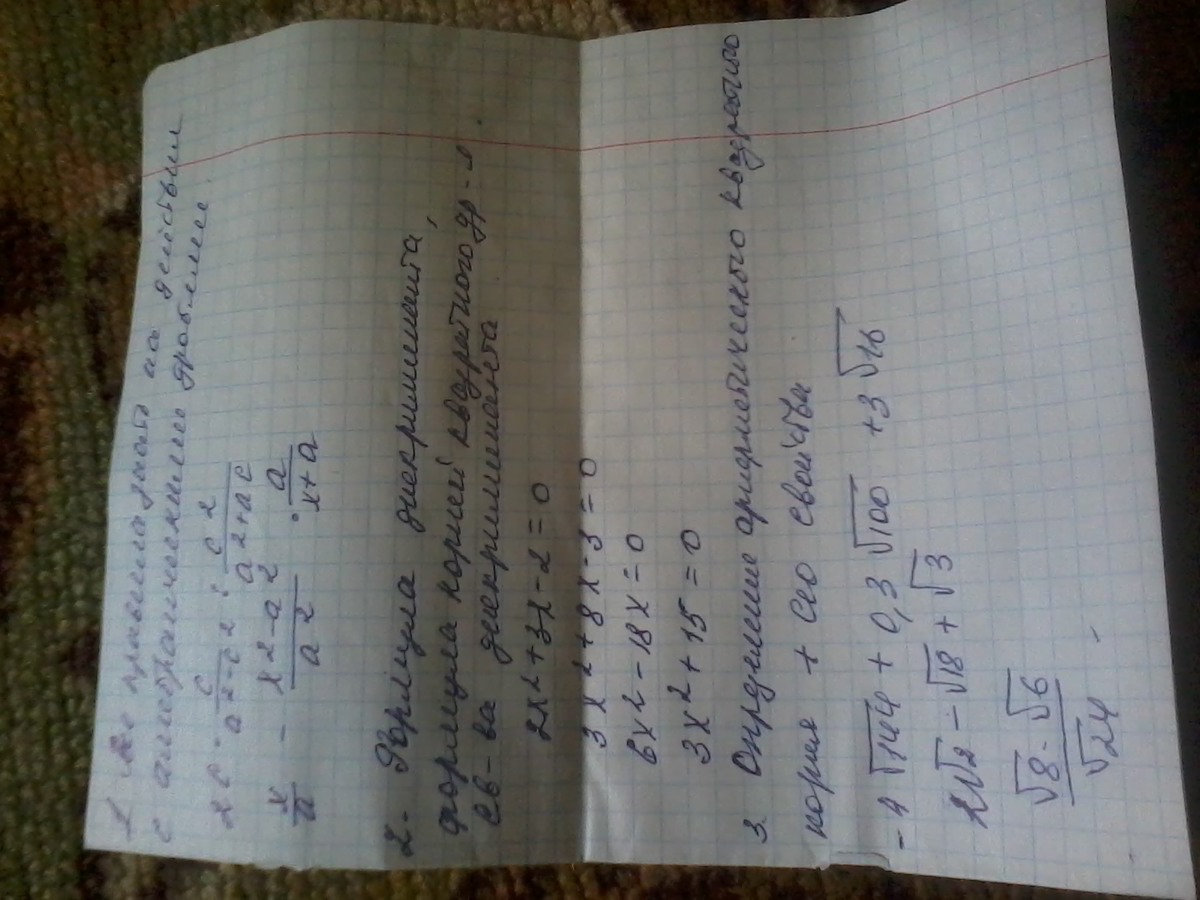 1 Все правила на действия
с алгебраическими дробями.
2c · c/a2-c2 : c2/a2+ac
x/a - x2-a2/a2 · a/x+a
2. Формула дискриминанта,
формула корней квадратного ур-я
св-ва дискриминанта
2x2+3x-2=0
3x2+8x-3=0
6x2-18x=0
3x2+15=0
3. Определение арифметического квадратного
корня + его свойства
-4√144 + 0,3√100 +3√16
2√2 - √18 + √3
√8 · √6/√24